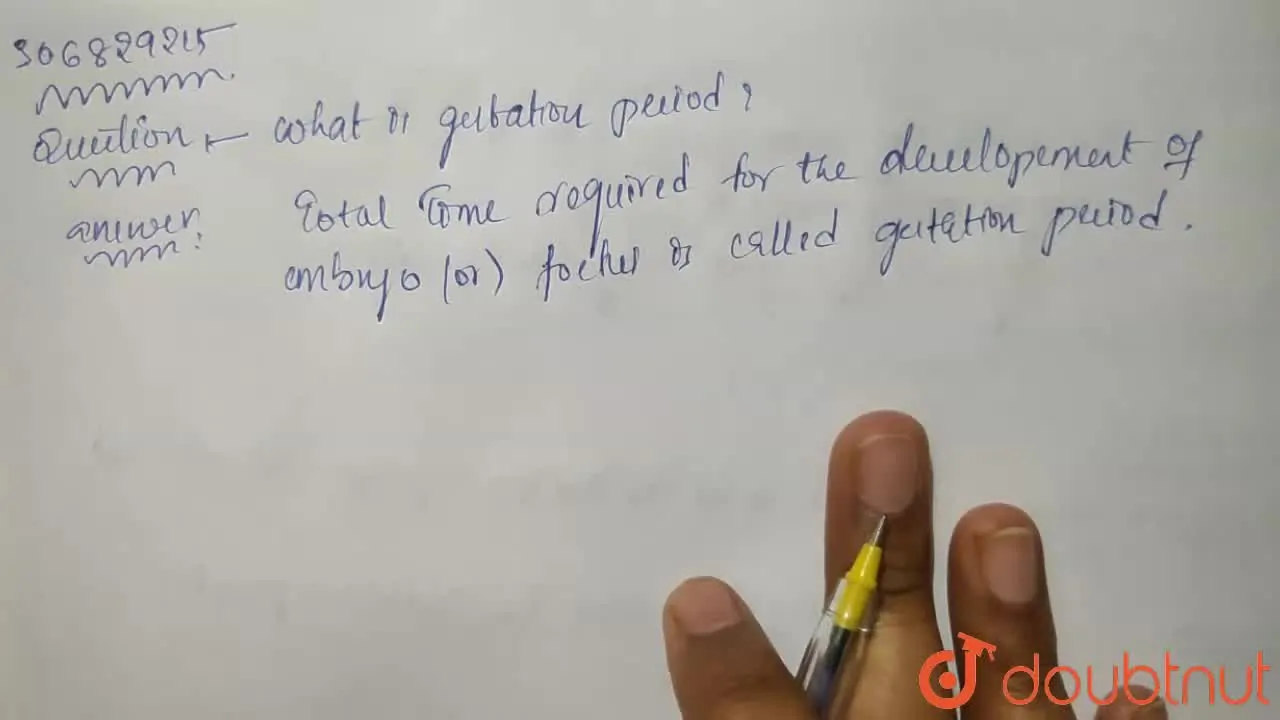 306829215
Question :- What is gestation period?
answer: Total Time required for the developement of
embryo (or) foetus is called gestation period.
doubtnut